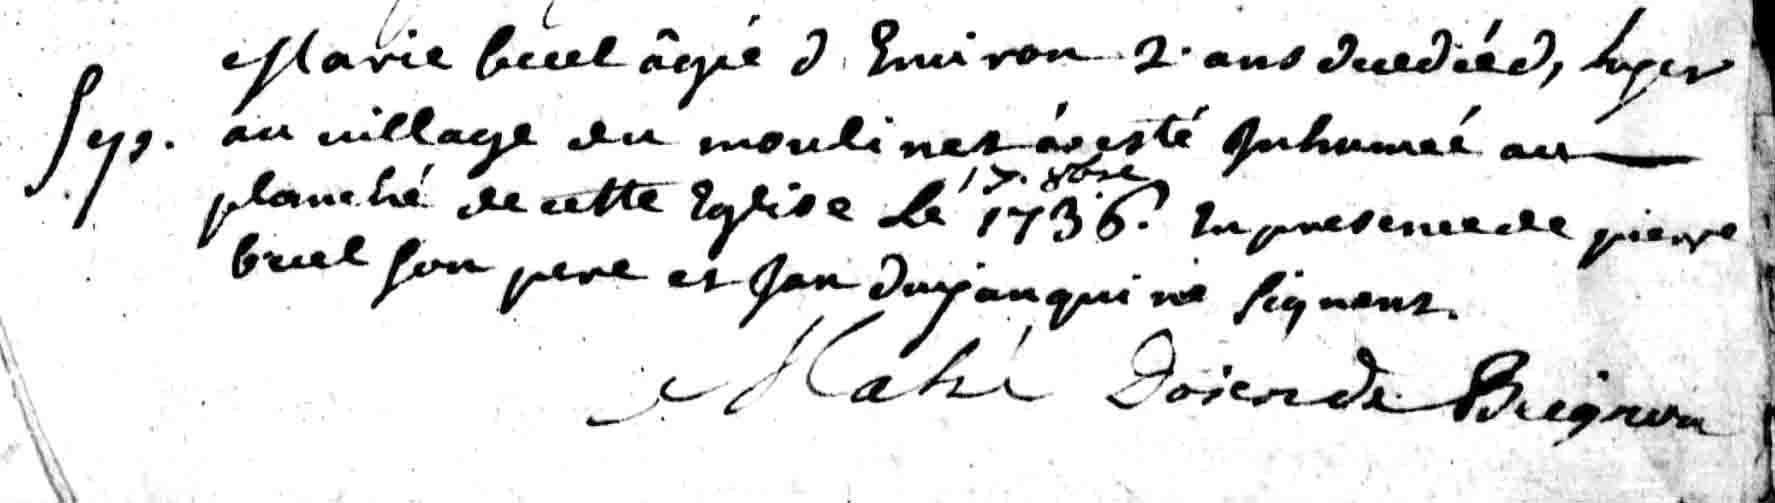 Marie bruel âgeé d Environ 2. ans decedeé d, hyer
Sep. au village du moulinet á esté Inhumeé au
planché de cette Eglise Le 17. 8bre 1736. En presence de pierre
bruel son pere et Jan qui ne signent.
Mahé Doien de